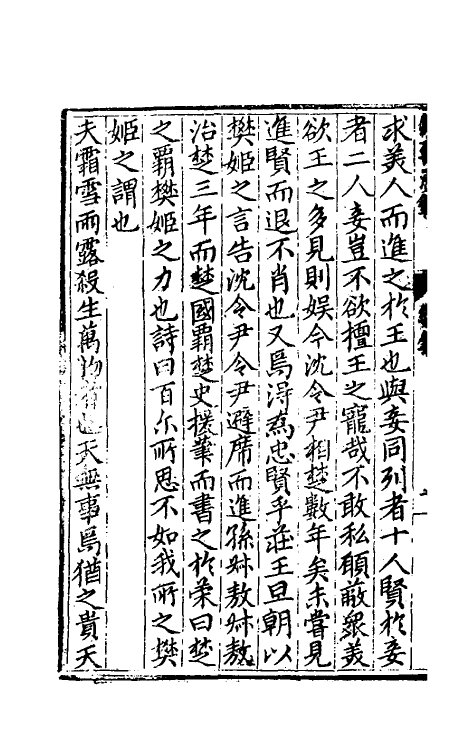 求美人而進之於王也與妾同列者十人賢於妾
者二人妾豈不欲擅王之寵哉不敢私願蔽衆美
欲王之多見則娱今沈令尹相楚數年矣未嘗見
進賢而退不肖也又焉得為忠賢乎莊王旦朝以
樊姬之言告沈令尹令尹避席而進孫叔敖叔敖
治楚三年而楚國覇楚史援筆而書之於策曰楚
之覇樊姬之力也詩曰百尓所思不如我所之樊
姬之謂也
夫霜雪雨露殺生萬物者也天無事焉猶之貴天